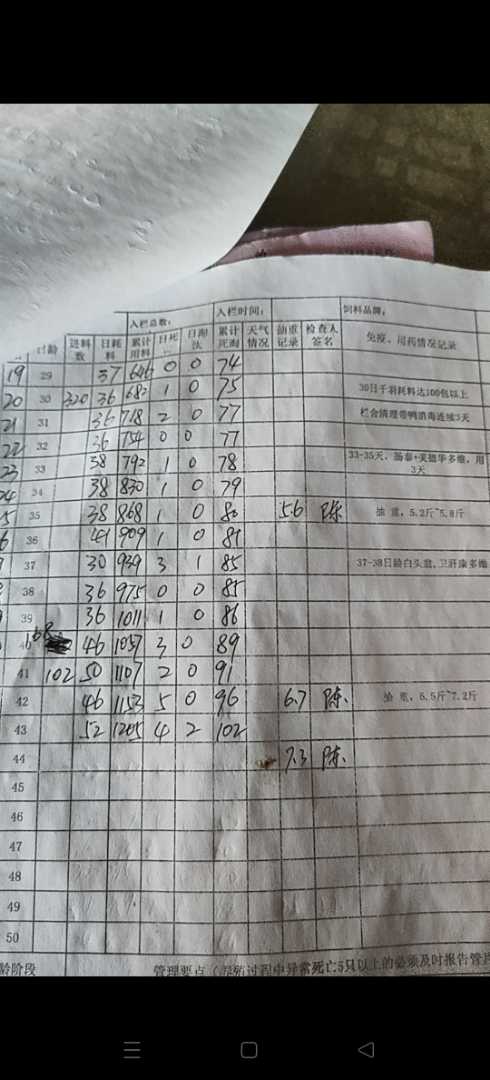 入栏总数: 入栏时间: 饲料品牌:
日龄 进料数 日耗料 累计用料 日死 日淘汰 累计死淘 天气情况 抽重记录 检查人签名 免疫、用药情况记录
19 29 37 646 0 0 74
20 30 320 36 682 1 0 75 30日千羽耗料达100包以上
21 31 36 718 2 0 77 栏舍清理带鸭消毒连续3天
22 32 36 754 0 0 77
23 33 38 792 1 0 78 33-35天、肠泰+美德华多维，用3天
24 34 38 830 1 0 79
5 35 38 868 1 0 80 5.6 陈 抽 重，5.2斤~5.8斤
6 36 41 909 1 0 81
37 30 939 3 1 85 37-38日龄白头翁,卫肝康多维
38 36 975 0 0 85
39 36 1011 1 0 86
40 168 46 1057 3 0 89
41 102 50 1107 2 0 91
42 46 1153 5 0 96 6.7 陈 抽 重，6.5斤~7.2斤
43 52 1205 4 2 102
44 7.3 陈
45
46
47
48
49
50
龄阶段 管理要点（养殖过程中异常死亡5只以上的必须及时报告管